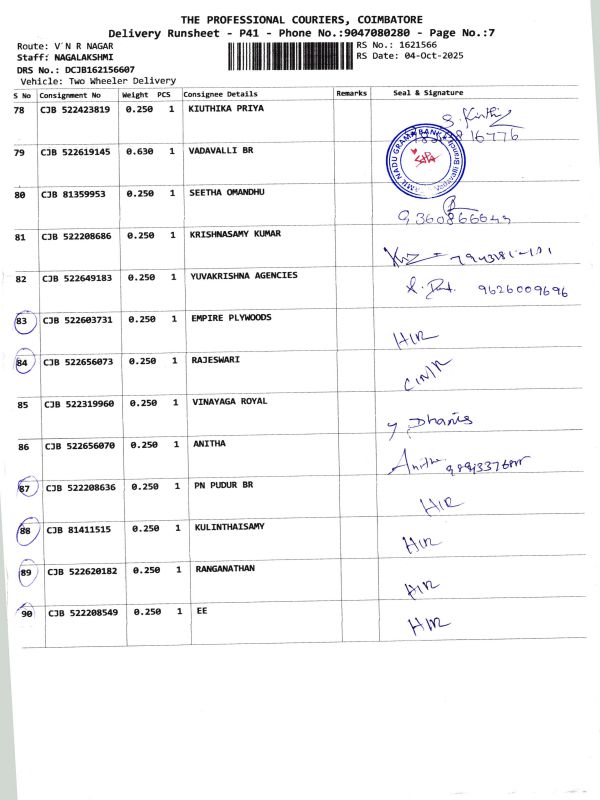 THE PROFESSIONAL COURIERS, COIMBATORE
Delivery Runsheet - P41 - Phone No.:9047080280 - Page No.:7
Route: V N R NAGAR RS No.: 1621566
Staff: NAGALAKSHMI RS Date: 04-Oct-2025
DRS No.: DCJB162156607
Vehicle: Two Wheeler Delivery
S No Consignment No Weight PCS Consignee Details Remarks Seal & Signature
78 CJB 522423819 0.250 1 KIUTHIKA PRIYA
79 CJB 522619145 0.630 1 VADAVALLI BR
80 CJB 81359953 0.250 1 SEETHA OMANDHU
81 CJB 522208686 0.250 1 KRISHNASAMY KUMAR
82 CJB 522649183 0.250 1 YUVAKRISHNA AGENCIES 9626009696
83 CJB 522603731 0.250 1 EMPIRE PLYWOODS HIR
84 CJB 522656073 0.250 1 RAJESWARI
85 CJB 522319960 0.250 1 VINAYAGA ROYAL
86 CJB 522656070 0.250 1 ANITHA Anitha
87 CJB 522208636 0.250 1 PN PUDUR BR HIR
88 CJB 81411515 0.250 1 KULINTHAISAMY HIR
89 CJB 522620182 0.250 1 RANGANATHAN HIR
90 CJB 522208549 0.250 1 EE HIR